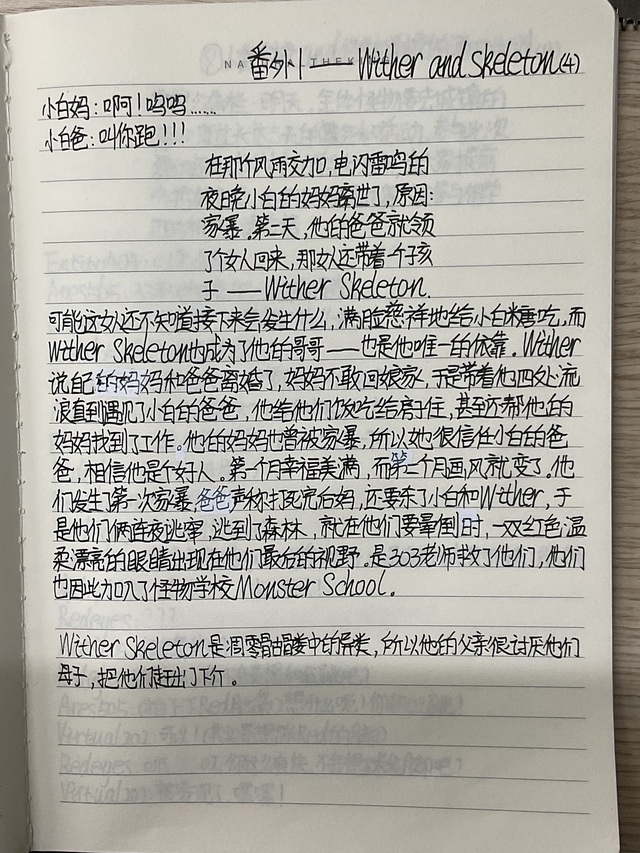 番外1——Wither and Skeleton(4)
小白妈：啊！呜呜……
小白爸：叫你跑！！！
在那个风雨交加，电闪雷鸣的
夜晚小白的妈妈离世了，原因：
家暴。第二天，他的爸爸就领
了个女人回来，那女人还带着一个孩
子——Wither Skeleton.
可能这女人还不知道接下来会发生什么，满脸慈祥地给小白糖吃，而
Wither Skeleton也成为了他的哥哥——也是他唯一的依靠。Wither
说自己的妈妈和爸爸离婚了，妈妈不敢回娘家，于是带着他四处流
浪直到遇见了小白的爸爸，他给他们饭吃给房子住，甚至还帮他的
妈妈找到了工作。他的妈妈也曾被家暴，所以她很信任小白的爸
爸，相信他是个好人。第一个月幸福美满，而第二个月画风就变了。他
们发生了第一次家暴，爸爸声称打死完后妈，还要杀了小白和Wither，于
是他们俩连夜逃窜，逃到了森林，就在他们要晕倒时，一双红色温
柔漂亮的眼睛出现在他们最后的视野。是303老师救了他们，他们
也因此加入了怪物学校Monster School.
Wither Skeleton是凋零骷髅中的异类，所以他的父亲很讨厌他们
母子，把他们赶出了下介。